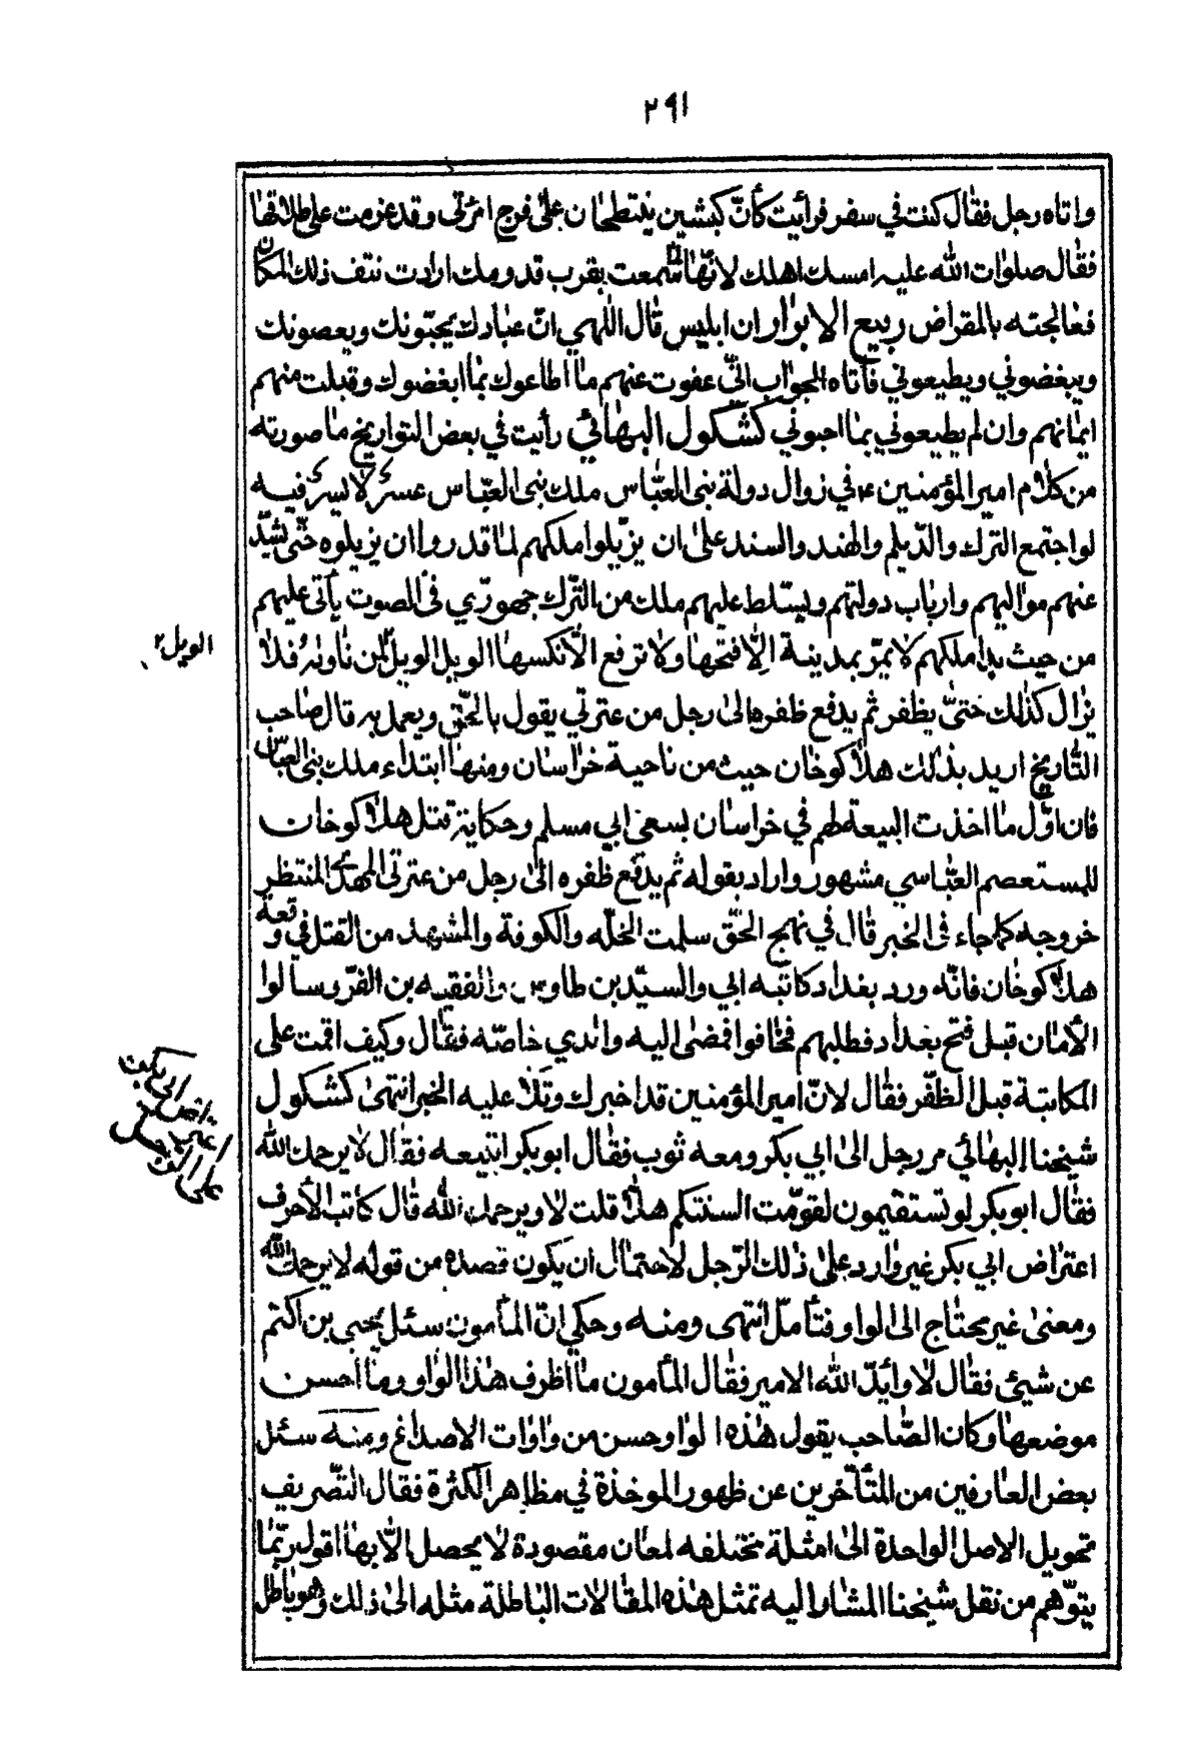 ٢٩١
واتاه رجل فقال كنت في سفر فرأيت كأنّ كبشين ينتطحان على فرج امرأتي وقد عزمت على طلاقها
فقال صلوات الله عليه امسك اهلك لانّها لمّا سمعت بقرب قدومك ارادت نتف ذلك المكان
فعالجته بالمقراض ربيع الابرار ان ابليس قال اللهي انّ عبادك يحبّونك ويعصونك
ويبغضوني ويطيعوني فأتاه الجواب انّي عفوت عنهم ما اطاعوك بما ابغضوك وقبلت منهم
ايمانهم وان لم يطيعوني بما احبوني كشكول البهائي رأيت في بعض التواريخ ما صورته
من كلام امير المؤمنين ع في زوال دولة بنى العبّاس ملك بنى العبّاس عسر لا يسر فيه
لو اجتمع الترك والدّيلم والهند والسند على ان يزيلوا ملكهم لما قدروا ان يزيلوه حتّى يشذّ
عنهم مواليهم وارباب دولتهم ويسّلط عليهم ملك من الترك جهوريّ فى الصوت يأتى عليهم
من حيث بدا ملكهم لا يمرّ بمدينة الّا فتحها ولا ترفع الّا نكسها الويل الويل لمن ناواه فلا
يزال كذلك حتىّ يظفر ثم يدفع ظفره الى رجل من عترتي يقول بالحّق ويعمل به قال صاحب
التّاريخ اريد بذلك هلاكوخان حيث من ناحية خراسان ومنها ابتداء ملك بنى العبّاس
فان اوّل ما اخذت البيعة لهم في خراسان بسعى ابي مسلم وحكاية قتل هلاكوخان
للمستعصم العبّاسي مشهور واراد بقوله ثم يدفع ظفره الى رجل من عترتى المهدىّ المنتظر
خروجه كما جاء فى الخبر قال في نهج الحقّ سلمت الحلّه والكوفة والمشهد من القتل في وقعة
هلاكوخان فانّه ورد بغداد كاتبه ابي والسيّد بن طاوس والفقيه بن الغرّ وسألوا
الأمان قبل فتح بغداد فطلبهم فخافوا فمضى اليه والدي خاصّه فقال وكيف اقمت على
المكاتبة قبل الظفّر فقال لانّ امير المؤمنين قد اخبرك وتلا عليه الخبر انتهى كشكول
شيخنا البهائي مر رجل الى ابي بكر ومعه ثوب فقال ابو بكر اتبيعه فقال لا يرحمك الله
فقال ابو بكر لو تستقيمون لقوّمت السنتكم هلّا قلت لا ويرحمك الله قال كاتب الأحرف
اعتراض ابي بكر غير وارد على ذلك الرّجل لاحتمال ان يكون قصده من قوله لا يرحمك الله
ومعنى غير يحتاج الى الواو فتأمل انتهى ومنه وحكي انّ المأمون سئل يحيى بن اكثم
عن شيئ فقال لا وايّد الله الامير فقال المأمون ما اظرف هذا الواو وما احسن
موضعها وكان الصّاحب يقول هذه الواو حسن من واوات الاصداغ ومنه سئل
بعض العارفين من المتأخّرين عن ظهور الموخذة في مظاهر الكثرة فقال التصّريف
تحويل الاصل الواحدة الى امثلة مختلفه لمعان مقصودة لا يحصل الّا بها اقول ربّما
يتوّهم من نقل شيخنا المشار اليه تمثل هذه المقالات الباطلة مثله الى ذلك وهو باطل
الويل ٢
اعتراض ابي بكر
على الرجل